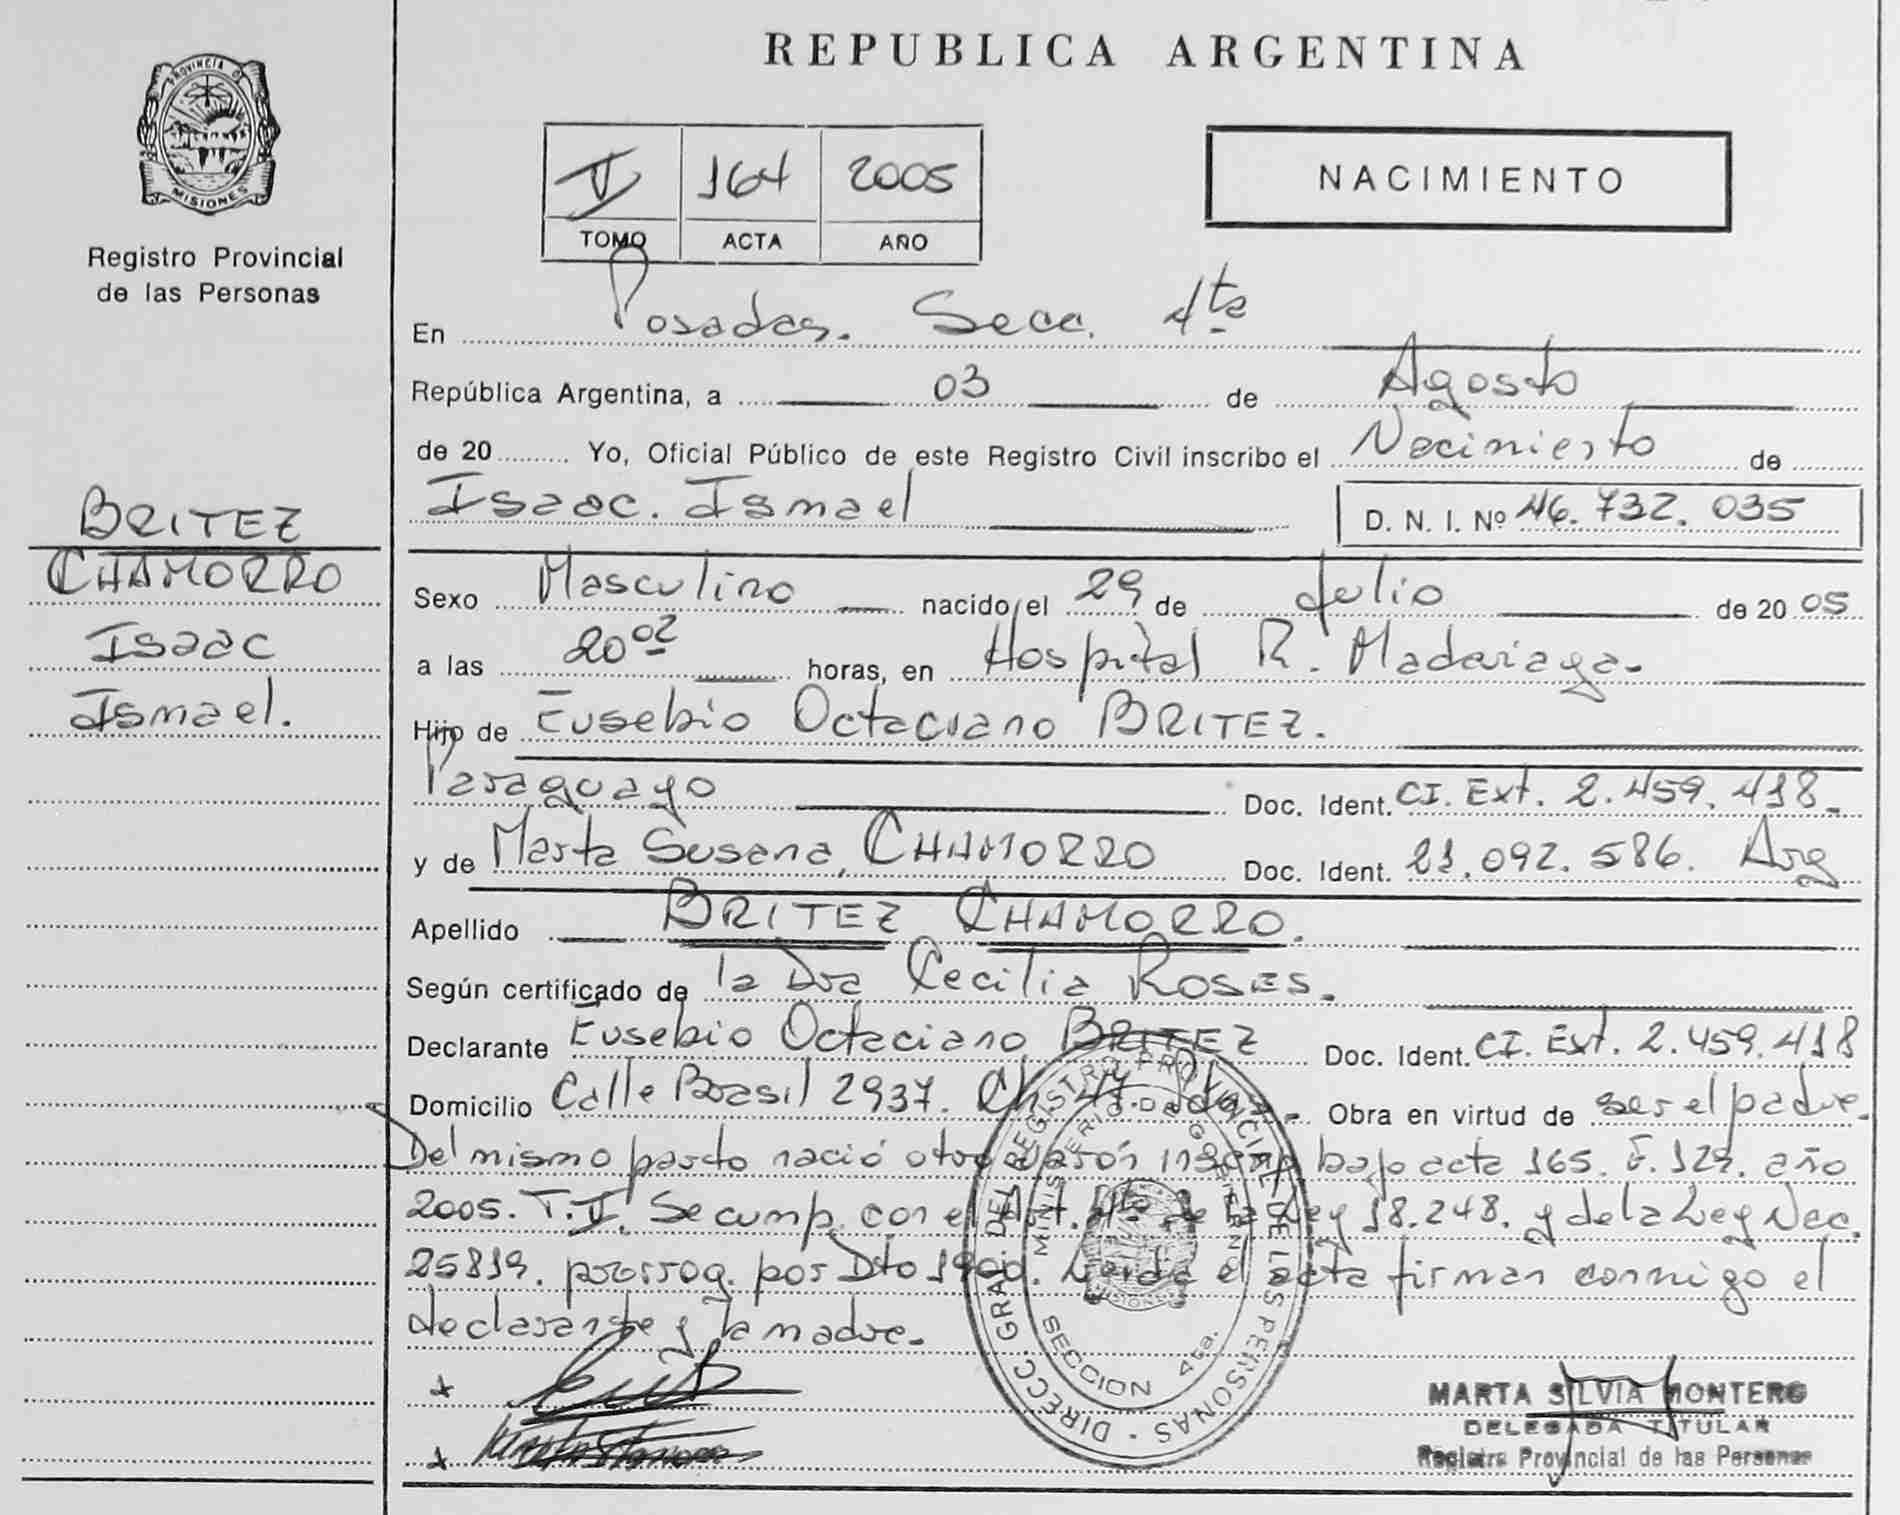 REPUBLICA ARGENTINA
PROVINCIA DE
MISIONES
Registro Provincial
de las Personas
V 164 2005
TOMO ACTA AÑO
NACIMIENTO
En Posadas. Secc. 4ta
República Argentina, a 03 de Agosto
de 20 Yo, Oficial Público de este Registro Civil inscribo el Nacimiento de
Isaac. Ismael D. N. I. Nº 46.732.035
BRITEZ
CHAMORRO
Isaac
Ismael.
Sexo Masculino nacido el 29 de Julio de 20 05
a las 20 02 horas, en Hospital R. Madariaga.
Hijo de Eusebio Octaciano BRITEZ.
Paraguayo Doc. Ident. CI. Ext. 2.459.418.
y de Marta Susana, CHAMORRO Doc. Ident. 21.092.586. Arg
Apellido BRITEZ CHAMORRO.
Según certificado de la Dra Cecilia ROSES.
Declarante Eusebio Octaciano BRITEZ Doc. Ident. CI. Ext. 2.459.418
Domicilio Calle Brasil 2937. Ch. 47 Obra en virtud de ser el padre.
Del mismo parto nació otro varón inscrip bajo acta 165. F. 129. año
2005. T. V. Se cump. con el Art. 4to de la Ley 18.248. y de la Ley Nac.
25819. prorrog. por Dto Leída el acta firman conmigo el
declarante y la madre.
DIRECC. GRAL. DEL REGISTRO PROVINCIAL DE LAS PERSONAS
MINISTERIO DE GOBIERNO
MISIONES
SECCION 4ta.
MARTA SILVIA MONTERO
DELEGADA TITULAR
Registro Provincial de las Personas